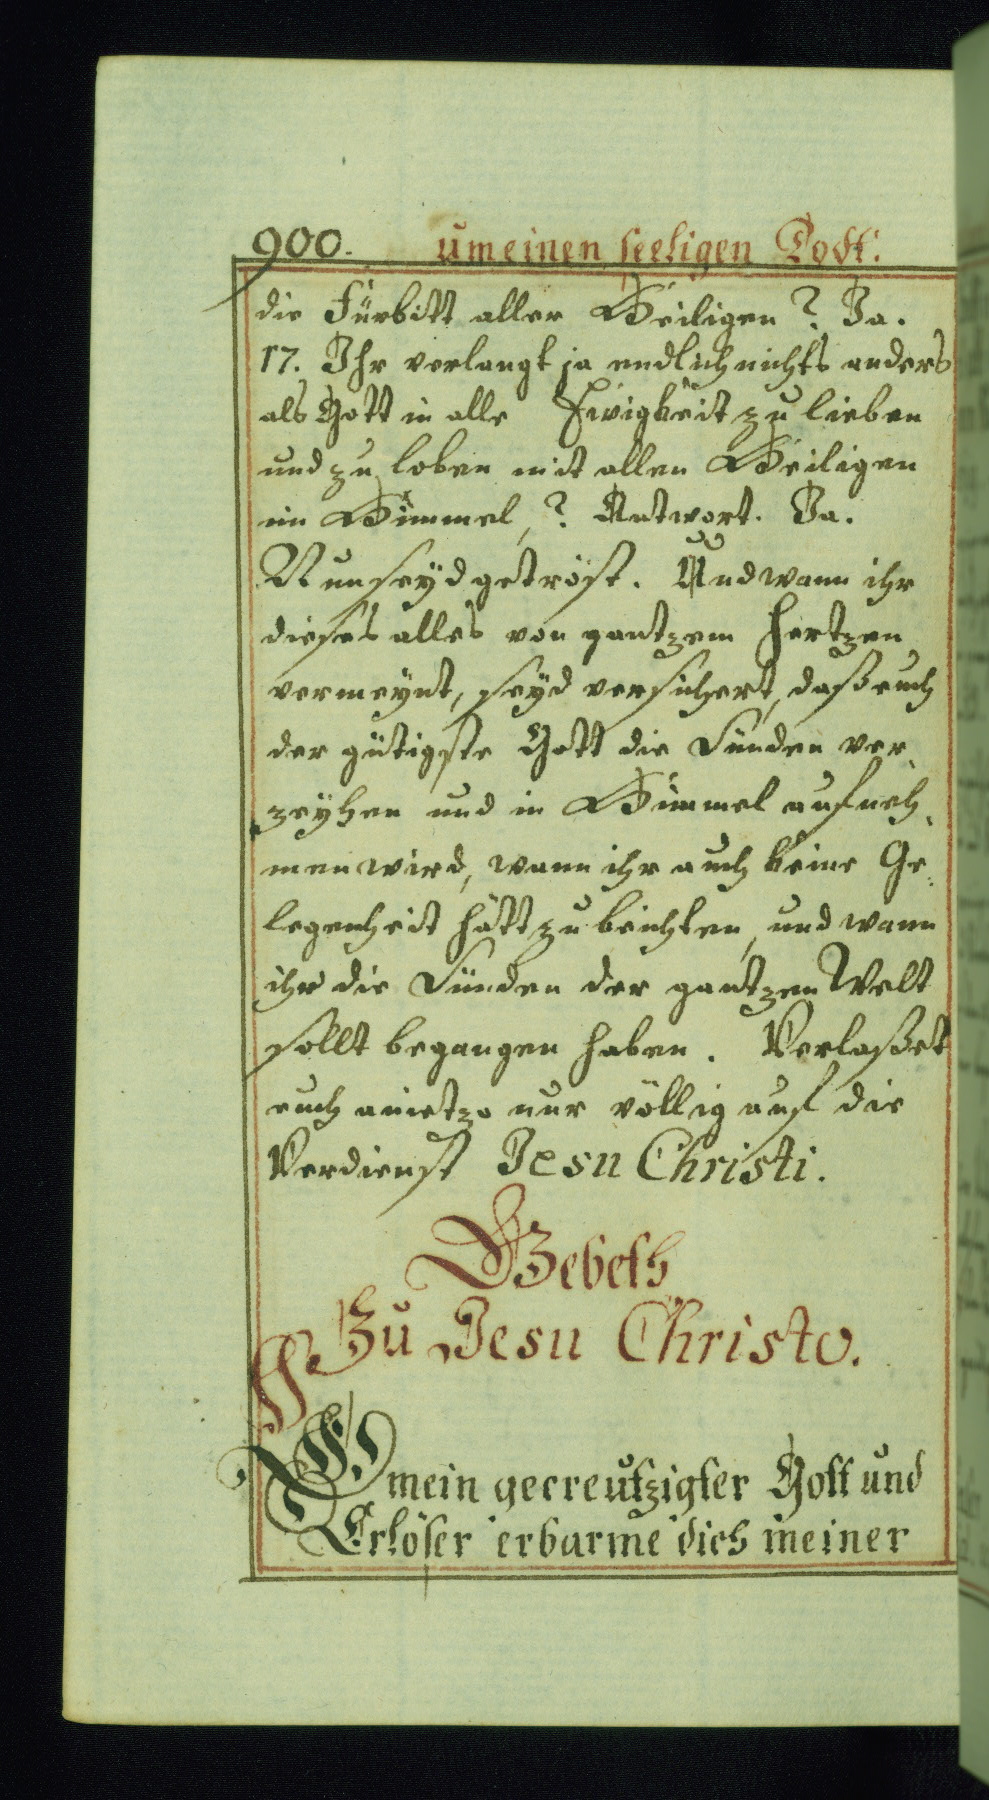 900. um einen seeligen Todt.
die Fürbitt aller Heiligen? Ja.
17. Ihr verlangt ja endlich nichts anders
als Gott in alle Ewigkeit zu lieben
und zu loben mit allen Heiligen
im Himmel,? Antwort. Ja.
Nun seyd getröst. Und wann ihr
dieses alles von gantzem Hertzen
vermeynt, seyd versichert, daß euch
der gütigste Gott die Sünden ver
zeyhen und in Himmel aufneh-
men wird, wann ihr auch keine Ge-
legenheit hätt zu beichten, und wann
ihr die Sünden der gantzen Welt
sollt begangen haben. Verlaßet
euch anietzo nur völlig auf die
Verdienst Jesu Christi.
Gebeth
Zu Jesu Christo.
O mein gecreutzigter Gott und
Erlöser erbarme dich meiner